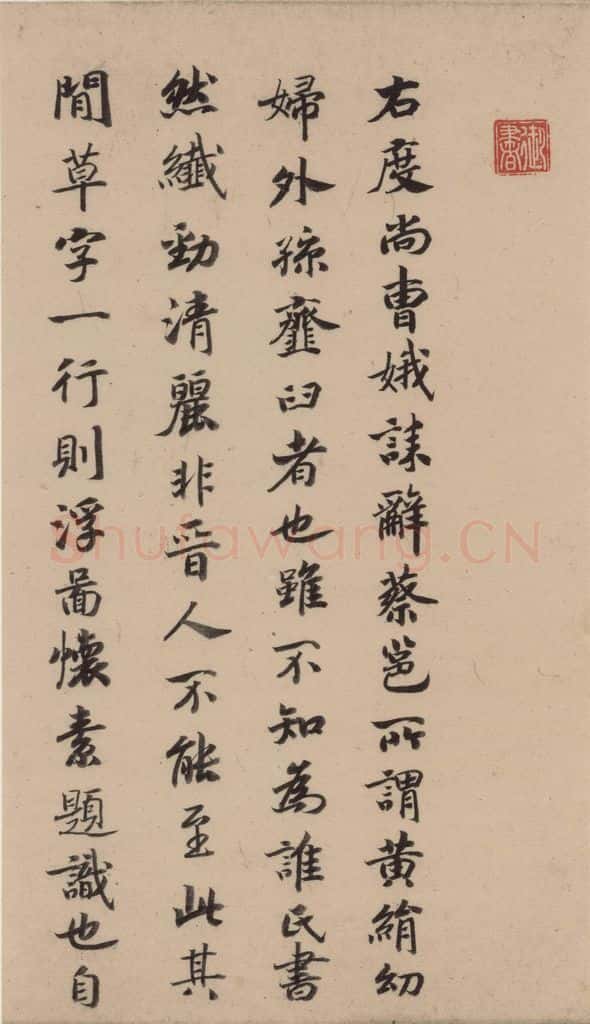 御書
右度尚曹娥誄辭蔡邕所謂黃絹幼
婦外孫齏臼者也雖不知為誰氏書
然纖勁清麗非晉人不能至此其
間草字一行則浮圖懷素題識也自
shufawang.CN